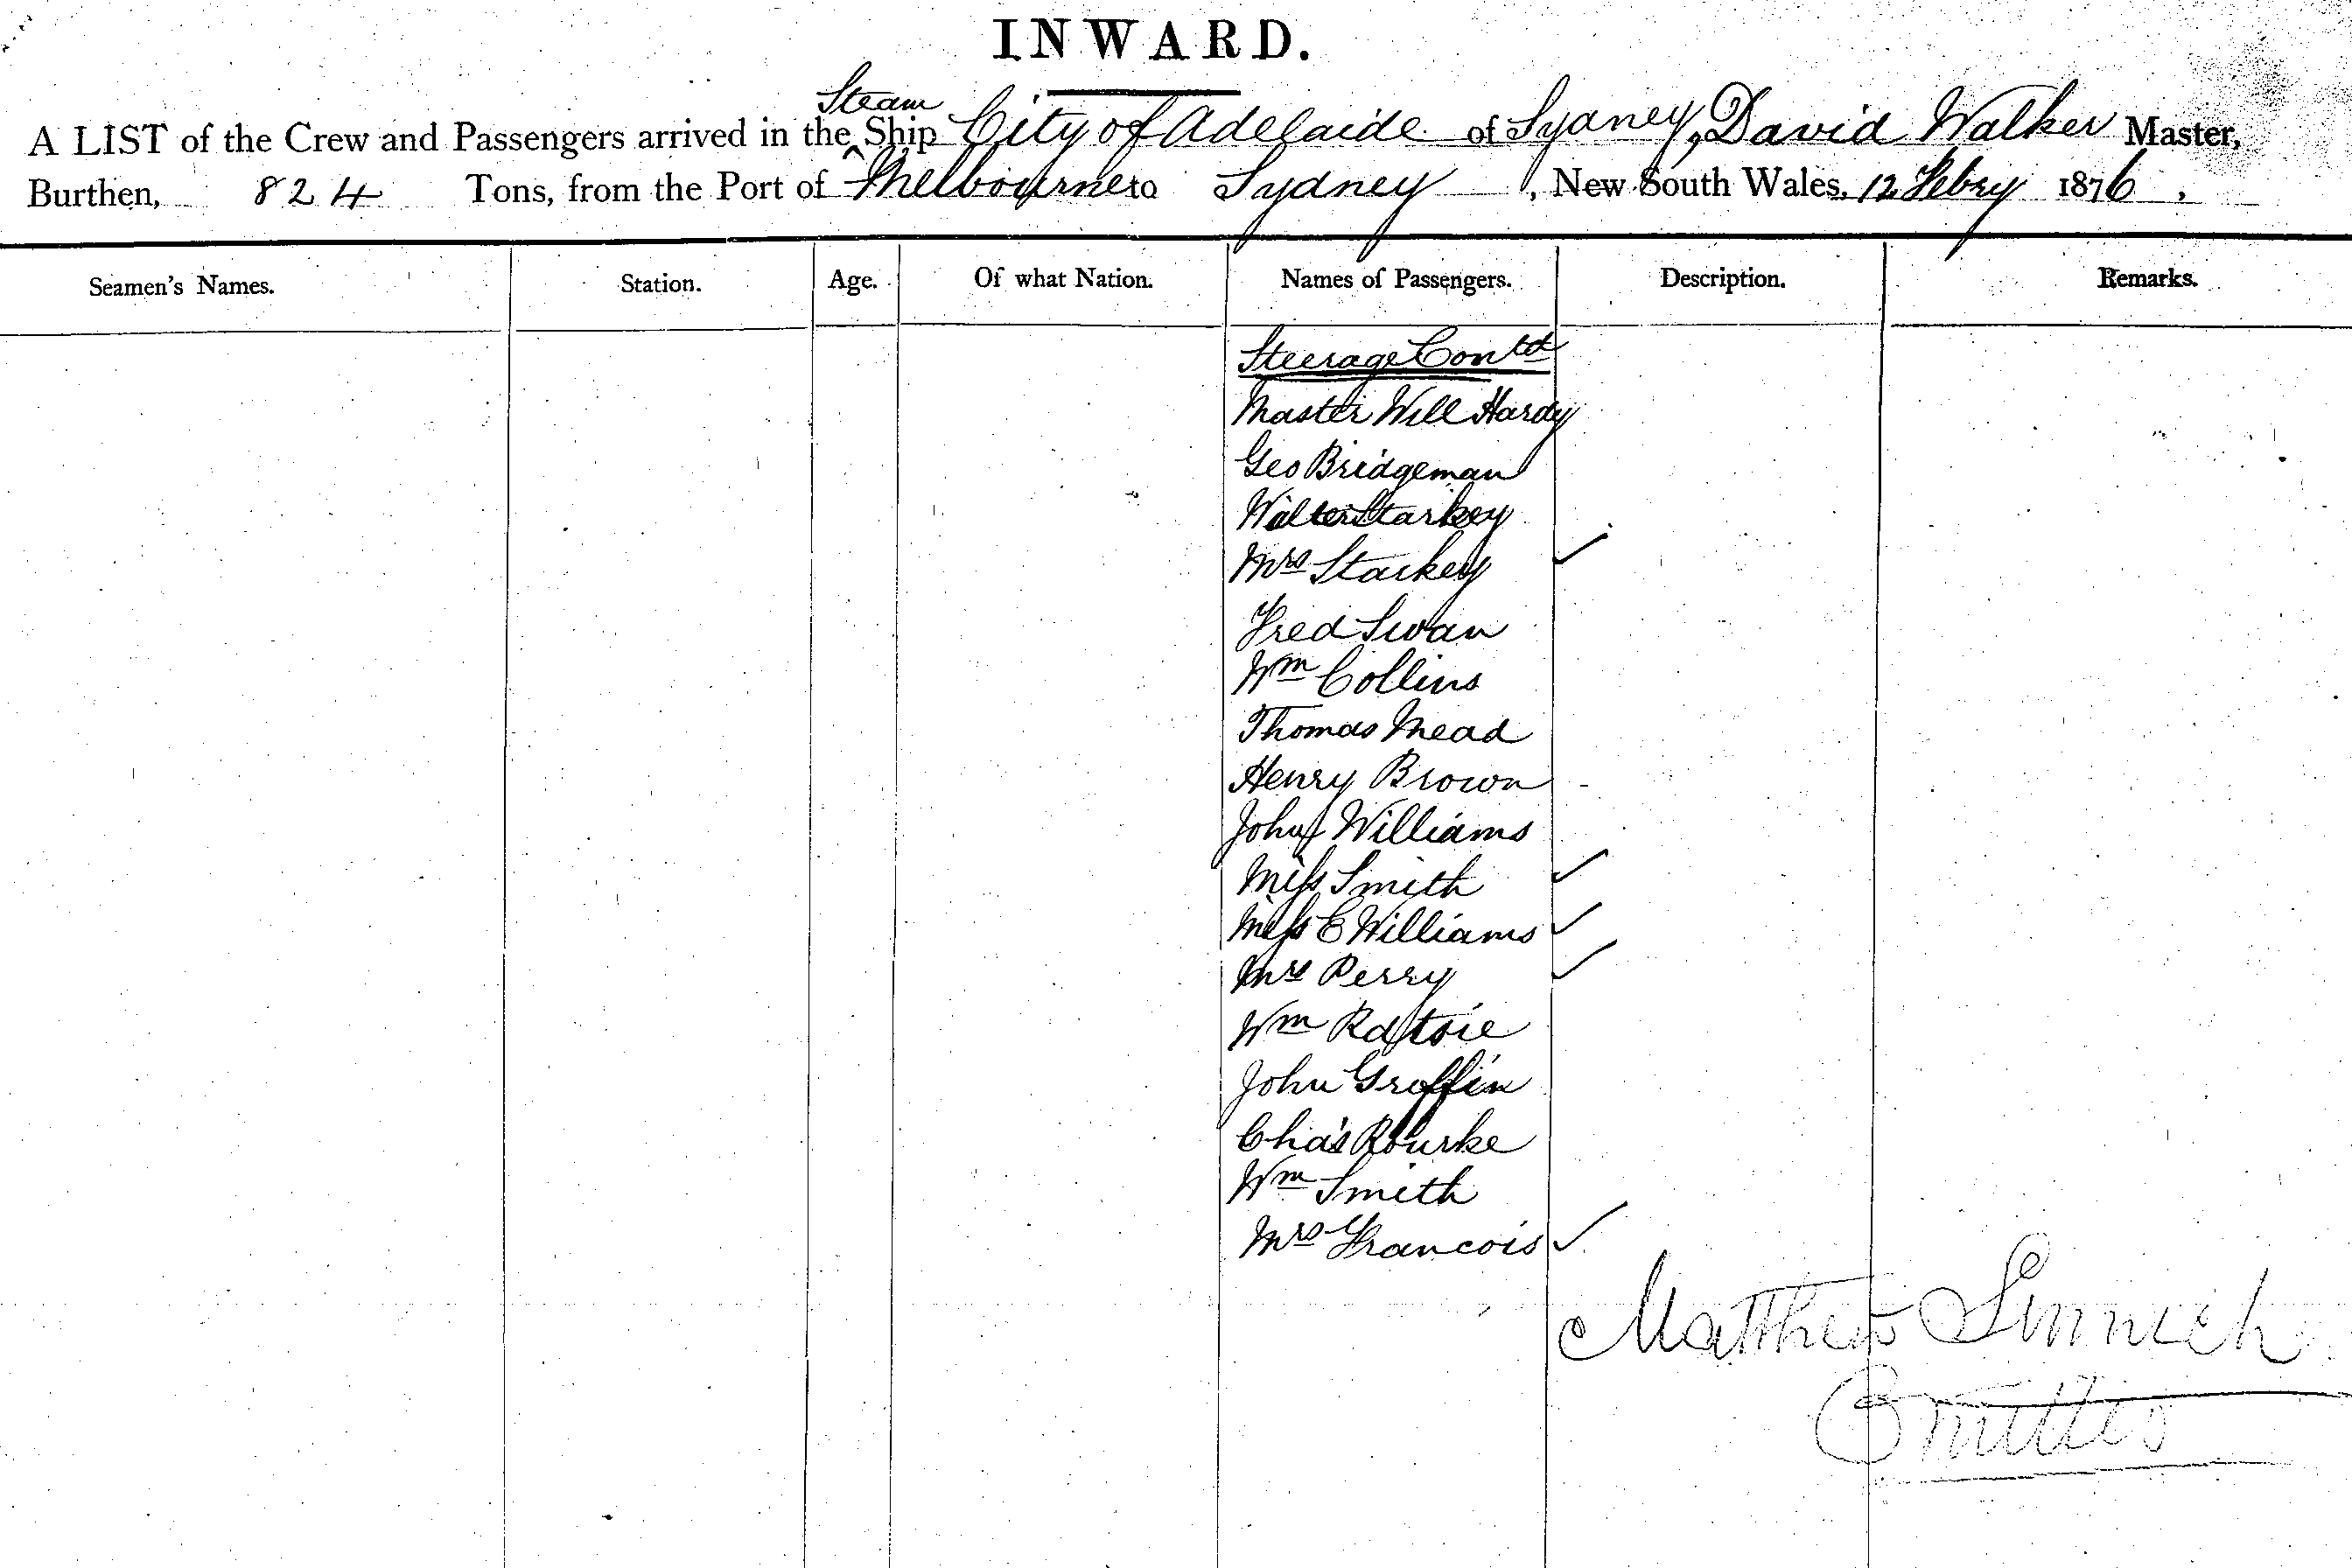 INWARD.
Steam
A LIST of the Crew and Passengers arrived in the ^ Ship City of Adelaide of Sydney, David Walker Master,
Burthen, 824 Tons, from the Port of Melbourne to Sydney, New South Wales, 12 Febry 1876.
Seamen's Names. Station. Age. Of what Nation. Names of Passengers. Description. Remarks.
Steerage Contd
Master Will Hardy
Geo Bridgeman
Walter Starkey
Mrs Starkey ✓
Fred Swan
Wm Collins
Thomas Mead
Henry Brown
John Williams
Miss Smith ✓
Miss E Williams ✓
Mrs Perry ✓
Wm
John Griffin
Chas Rourke
Wm Smith
Mrs Francois ✓
Matthew